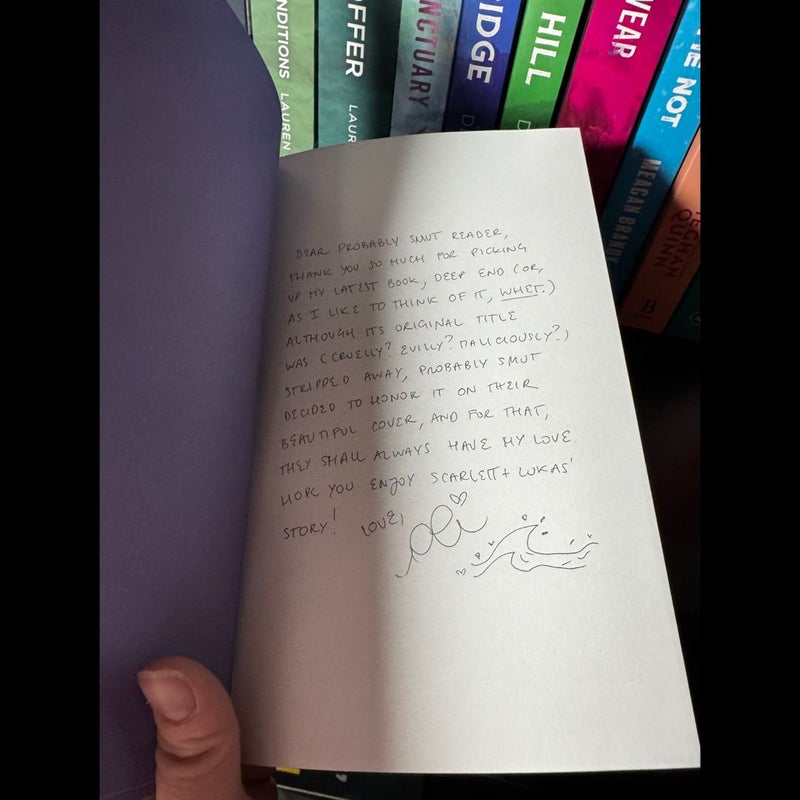 NDITIONS LAUREN
OFFER LAUR
NCTUARY
IDGE D
HILL D
WEAR
E NOT MEAGAN BRANDY
EGHAN QUINN
DEAR PROBABLY SMUT READER,
THANK YOU SO MUCH FOR PICKING
UP MY LATEST BOOK, DEEP END (OR,
AS I LIKE TO THINK OF IT, WHET.)
ALTHOUGH ITS ORIGINAL TITLE
WAS (CRUELLY? EVILLY? MALICIOUSLY?)
STRIPPED AWAY, PROBABLY SMUT
DECIDED TO HONOR IT ON THEIR
BEAUTIFUL COVER, AND FOR THAT,
THEY SHALL ALWAYS HAVE MY LOVE.
HOPE YOU ENJOY SCARLETT + LUKAS'
STORY! LOVE,